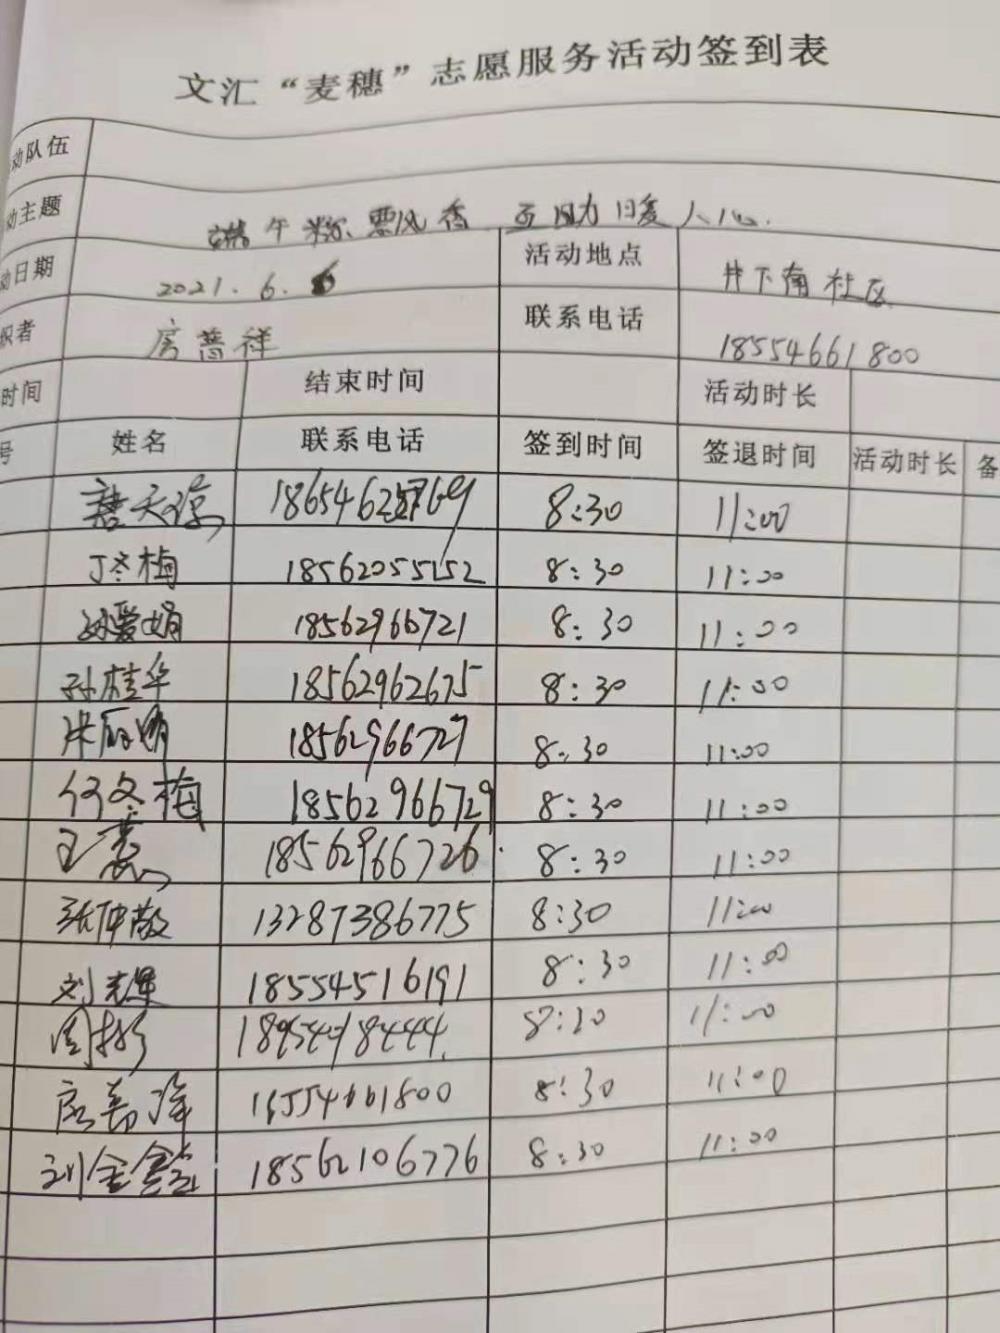 文汇“麦穗”志愿服务活动签到表
动队伍
动主题 端午粽飘香 互助暖人心.
动日期 2021.6. 活动地点 井下南社区
织者 房普祥 联系电话 18554661800
时间 结束时间 活动时长
号 姓名 联系电话 签到时间 签退时间 活动时长 备
8:30 11:00
丁冬梅 18562055152 8:30 11:00
孙爱娟 18562966721 8:30 11:00
孙桂华 18562962675 8:30 11:00
18562966727 8:30 11:00
何冬梅 18562966729 8:30 11:00
王惠 18562966726 8:30 11:00
张仲敏 13287386775 8:30 11:00
刘 18554516191 8:30 11:00
周 8:30 11:00
房普祥 18554661800 8:30 11:00
刘金鑫 18562106776 8:30 11:00